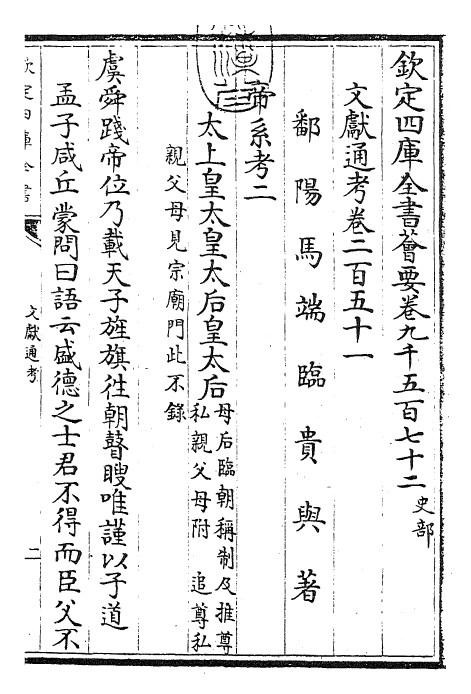 欽定四庫全書薈要卷九千五百七十二 史部
文獻通考卷二百五十一
鄱陽馬端臨貴與著
帝系考二
太上皇太皇太后皇太后 母后臨朝稱制及推尊
私親父母附 追尊私
親父母見宗廟門此不錄
虞舜踐帝位乃載天子旌旗往朝瞽瞍唯謹以子道
孟子咸丘蒙問曰語云盛德之士君不得而臣父不
欽定四庫全書
文獻通考
二